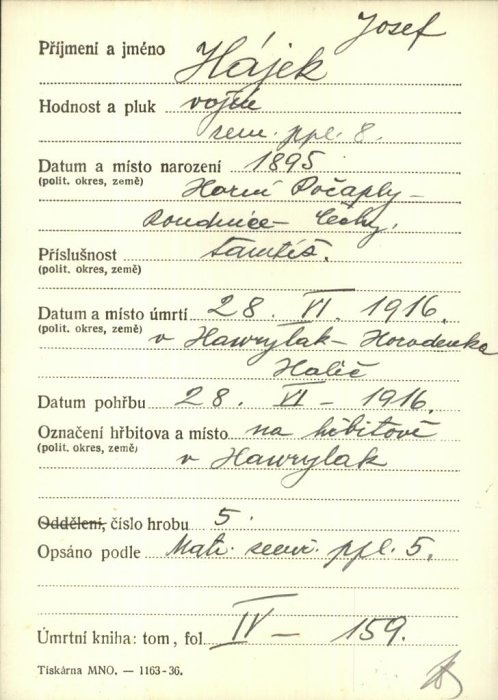 Josef
Příjmení a jméno Hájek
Hodnost a pluk vojín
zem. ppl. 8.
Datum a místo narození 1895
(polit. okres, země) Horní Počaply -
Roudnice - Čechy.
Příslušnost tamtéž.
(polit. okres, země)
Datum a místo úmrtí 28. VI. 1916.
(polit. okres, země) v Hawrylak - Horodenka
Halič
Datum pohřbu 28. VI - 1916.
Označení hřbitova a místo na hřbitově
(polit. okres, země) v Hawrylak
Oddělení, číslo hrobu 5.
Opsáno podle Matr. zem. ppl. 5.
Úmrtní kniha: tom, fol. IV - 159.
Tiskárna MNO. — 1163-36.